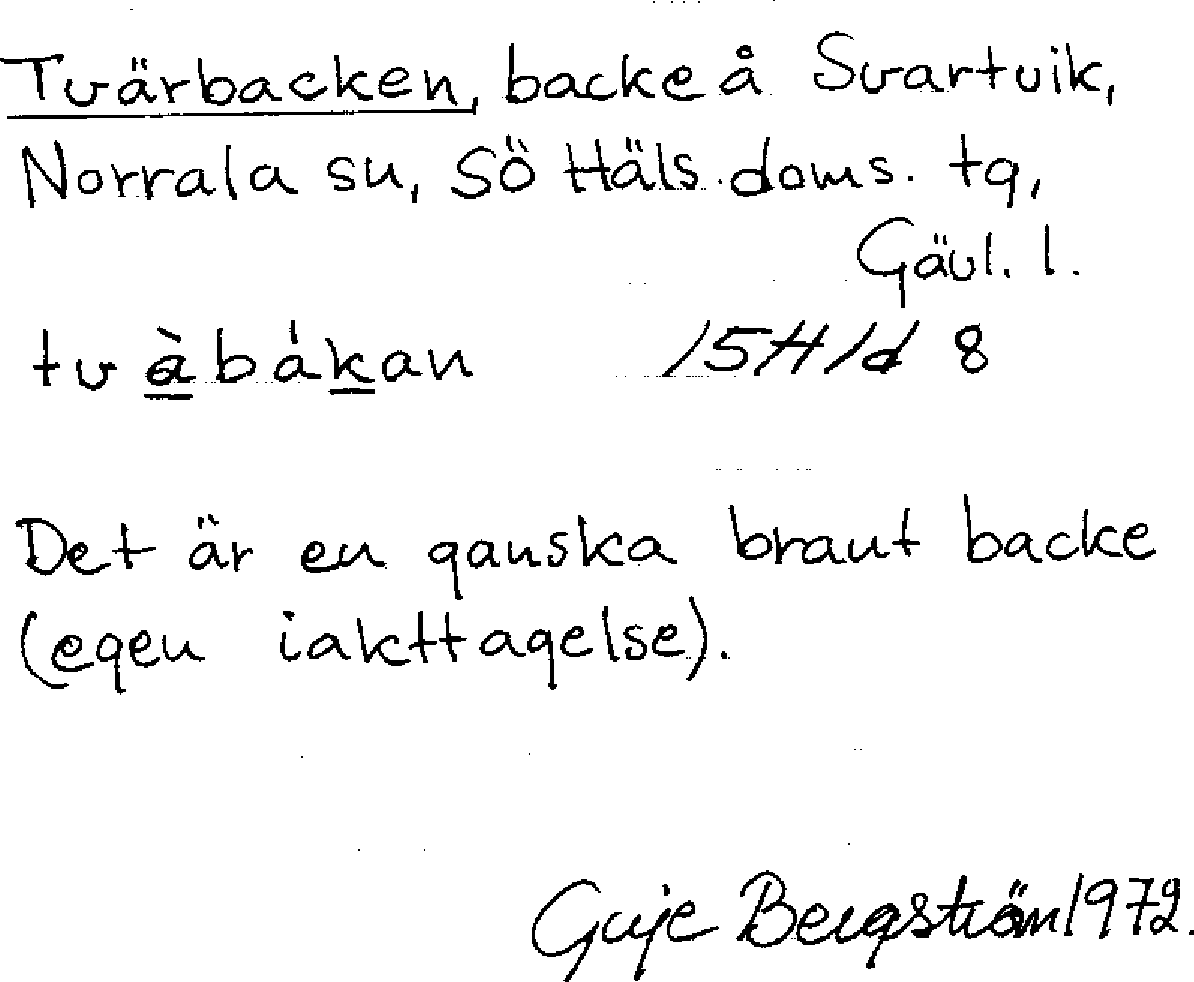 Tvärbacken, backe å Svartvik,
Norrala sn, Sö Häls. doms. tg,
Gävl. l.
tv à bákan 15H1d 8
Det är en ganska brant backe
(egen iakttagelse).
Bergström 1972.